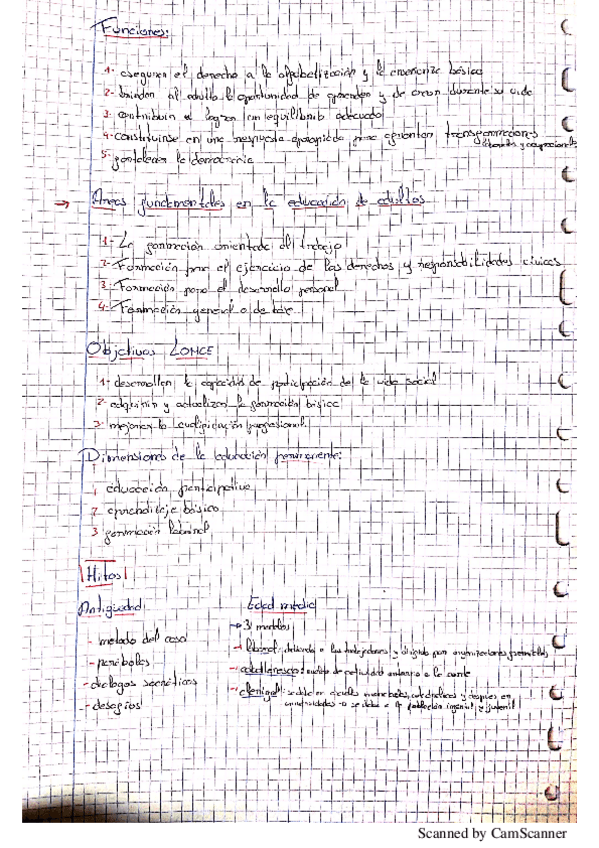 Funciones:
1- asegurar el derecho a la alfabetización y la enseñanza básica
2- brindar al adulto la oportunidad de aprender y de crear durante su vida
3- contribuir a lograr un equilibrio adecuado
4- constituirse en una respuesta apropiada para afrontar transformaciones
laborales y ocupacionales
5- fortalecer la democracia
→ Areas fundamentales en la educación de adultos
1- La formación orientada al trabajo
2- Formación para el ejercicio de los derechos y responsabilidades cívicas
3- Formación para el desarrollo personal
4- Formación general o de base
Objetivos LOMCE
1- desarrollar la capacidad de participación de la vida social
2- adquirir y actualizar la formación básica
3- mejorar la cualificación profesional.
Dimensiones de la educación permanente:
1 educación participativa
2 aprendizaje básico
3 formación laboral
Hitos
Antigüedad
- metodo del caso
- parábolas
- dialogos socráticos
- desafios
Edad media
→ 3 modelos
- laboral: a los trabajadores y dirigido por organizaciones gremiales
- caballeresco: modelo de actividad a la corte
- clerigal: y después en
universidades población infantil y juvenil
Scanned by CamScanner